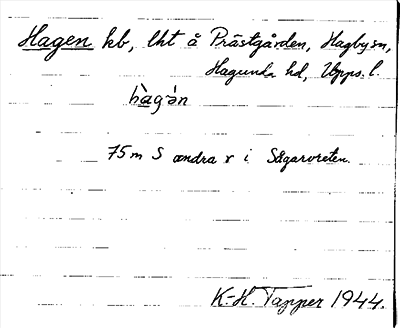 Hagen kb, lht å Prästgården, Hagbysn,
Hagunda hd, Upps. l.
hàgən
75 m S andra r i Sågarvreten.
K.-H. Tapper 1944.